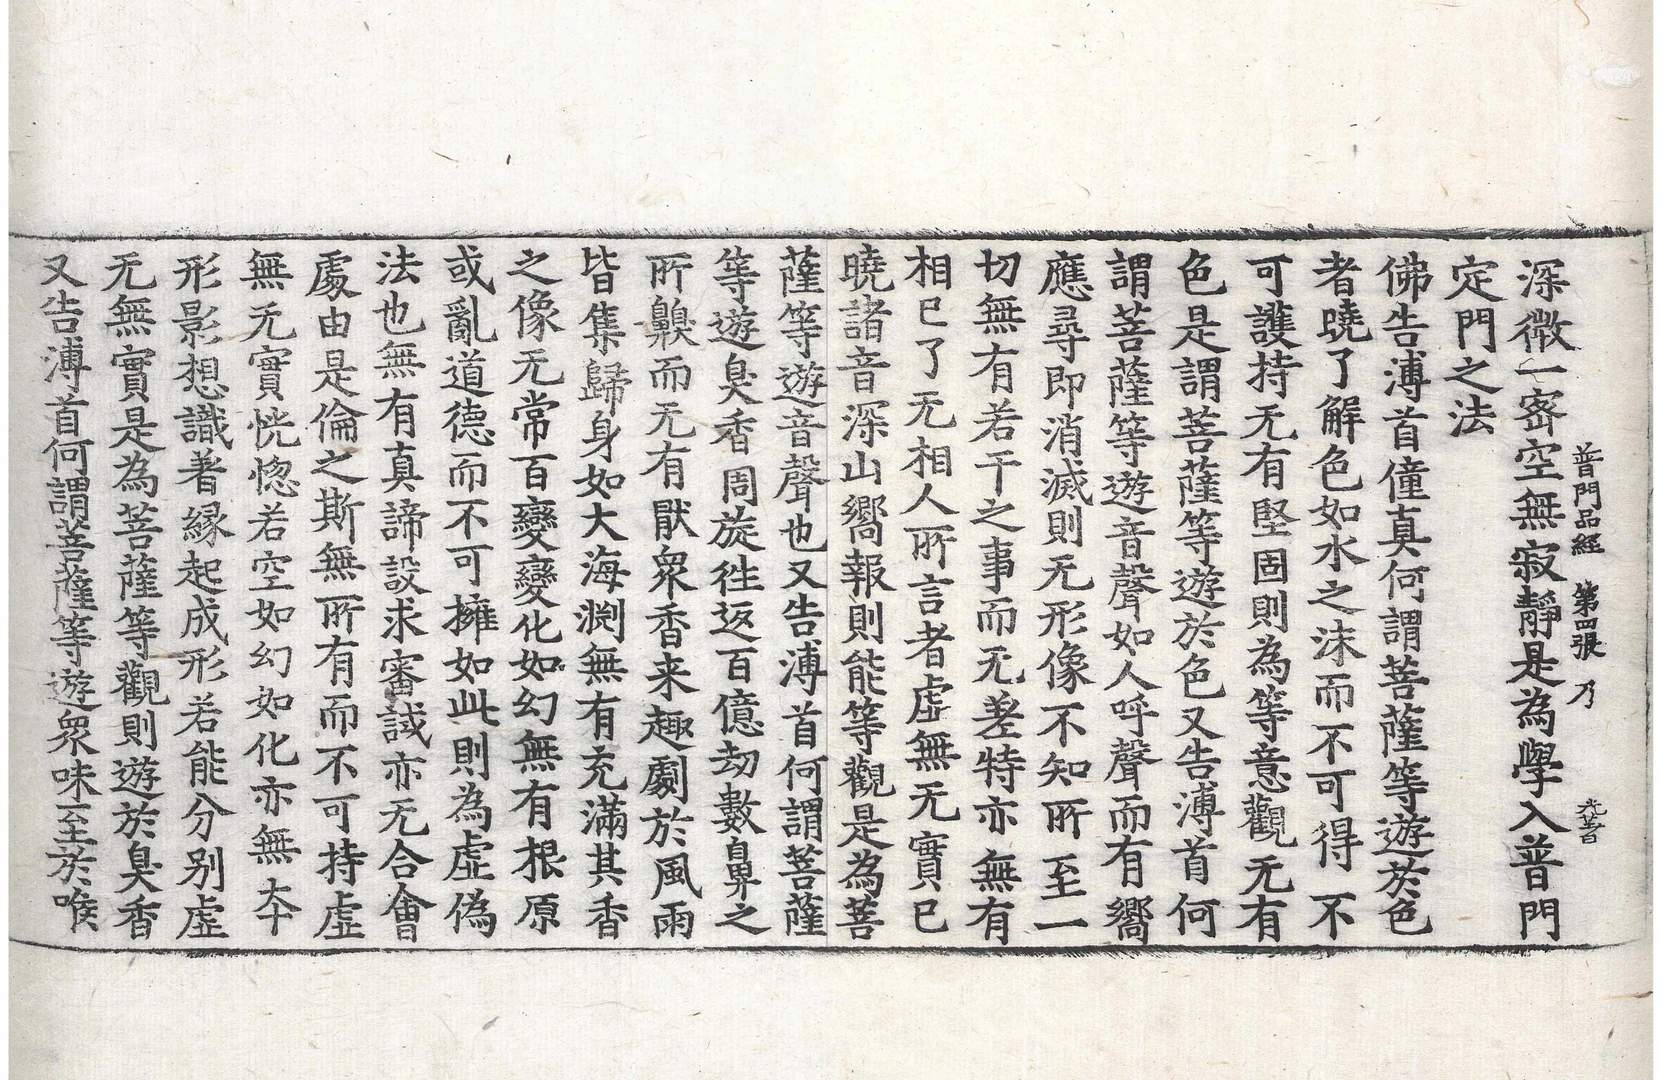 普門品經 第四張 乃
深微一宻空無寂靜是為學入普門
定門之法
佛告溥首僮真何謂菩薩等遊於色
者曉了解色如水之沫而不可得不
可護持无有堅固則為等意觀无有
色是謂菩薩等遊於色又告溥首何
謂菩薩等遊音聲如人呼聲而有嚮
應尋即消滅則无形像不知所至一
切無有若干之事而无差特亦無有
相已了无相人所言者虛無无實已
曉諸音深山嚮報則能等觀是為菩
薩等遊音聲也又告溥首何謂菩薩
等遊臭香周旋徃返百億劫數鼻之
所齅而无有猒衆香来趣劇於風雨
皆集歸身如大海渕無有充滿其香
之像无常百變變化如幻無有根原
或亂道德而不可擁如此則為虛偽
法也無有真諦設求審諴亦无合會
處由是倫之斯無所有而不可持虛
無无實恍惚若空如幻如化亦無夲
形影想識著緣起成形若能分别虛
无無實是為菩薩等觀則遊於臭香
又告溥首何謂菩薩等遊衆味至於喉